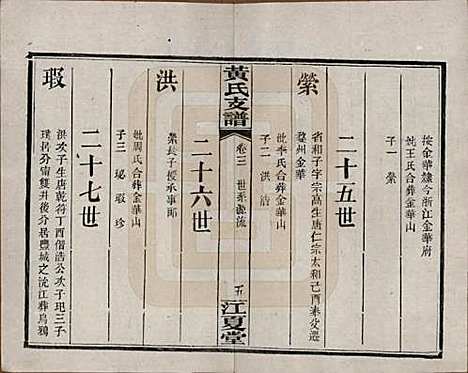 按金華隸今浙江金華府
妣王氏合葬金華山
子一 縈
二十五世
縈
省和子字宗高生唐仁宗太和己酉奉父遷
婺州金華
妣李氏合葬金華山
子二 洪 浩
黃氏支譜
卷三 世系源流
五
江夏堂
二十六世
洪
縈長子授承事郎
妣周氏合葬金華山
子三 珌瑕珍
二十七世
瑕
洪次子生唐乾符丁酉偕浩公次子玘三子
璞初分甯雙井後分居豐城之沇江葬烏鴉